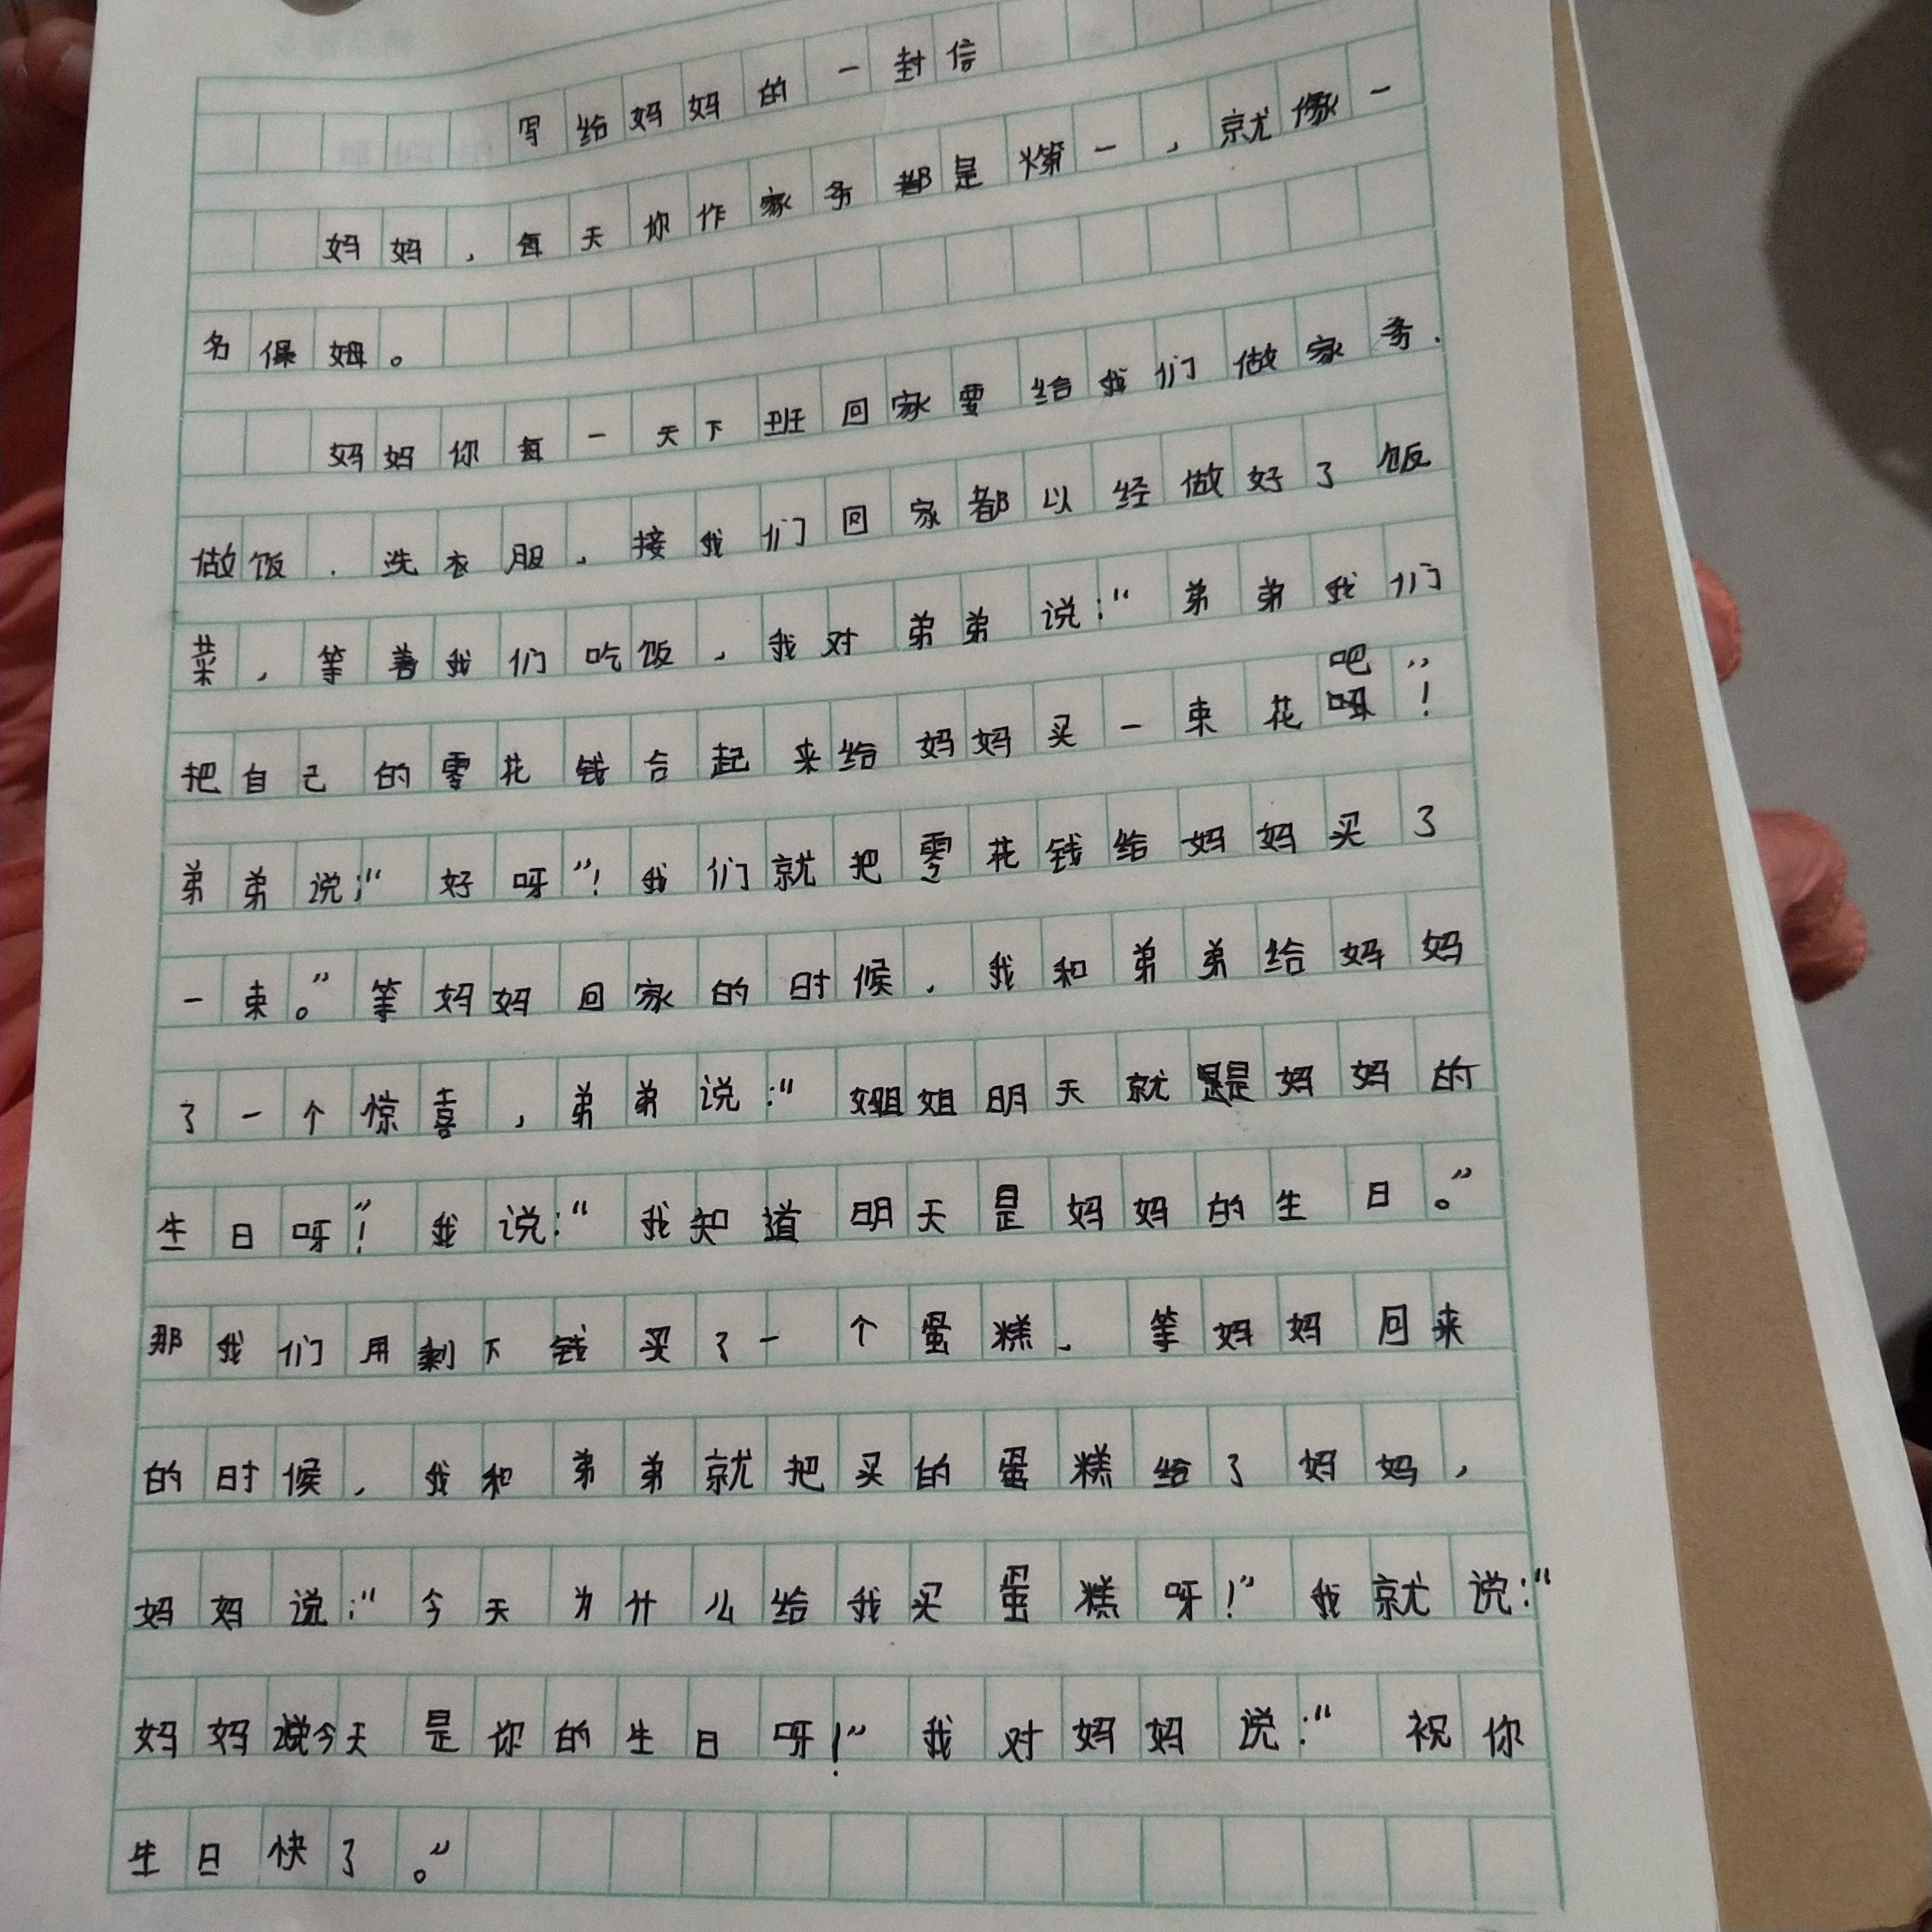 写给妈妈的一封信
妈妈，每天你作家务都是第一，就像一
名保姆。
妈妈你每一天下班回家要给我们做家务.
做饭.洗衣服，接我们回家都以经做好了饭
菜，等着我们吃饭，我对弟弟说：“弟弟我们
把自己的零花钱合起来给妈妈买一束花吧”！
弟弟说；“好呀”！我们就把零花钱给妈妈买了
一束。”等妈妈回家的时候，我和弟弟给妈妈
了一个惊喜，弟弟说：“姐姐明天就是妈妈的
生日呀”！我说：“我知道明天是妈妈的生日。”
那我们用剩下钱买了一个蛋糕，等妈妈回来
的时候，我和弟弟就把买的蛋糕给了妈妈，
妈妈说：“今天为什么给我买蛋糕呀！”我就说：“
妈妈今天是你的生日呀！”我对妈妈说：“祝你
生日快了。”